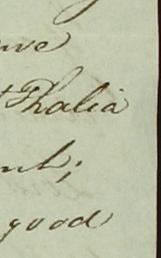 ave
Thalia
ent;
good